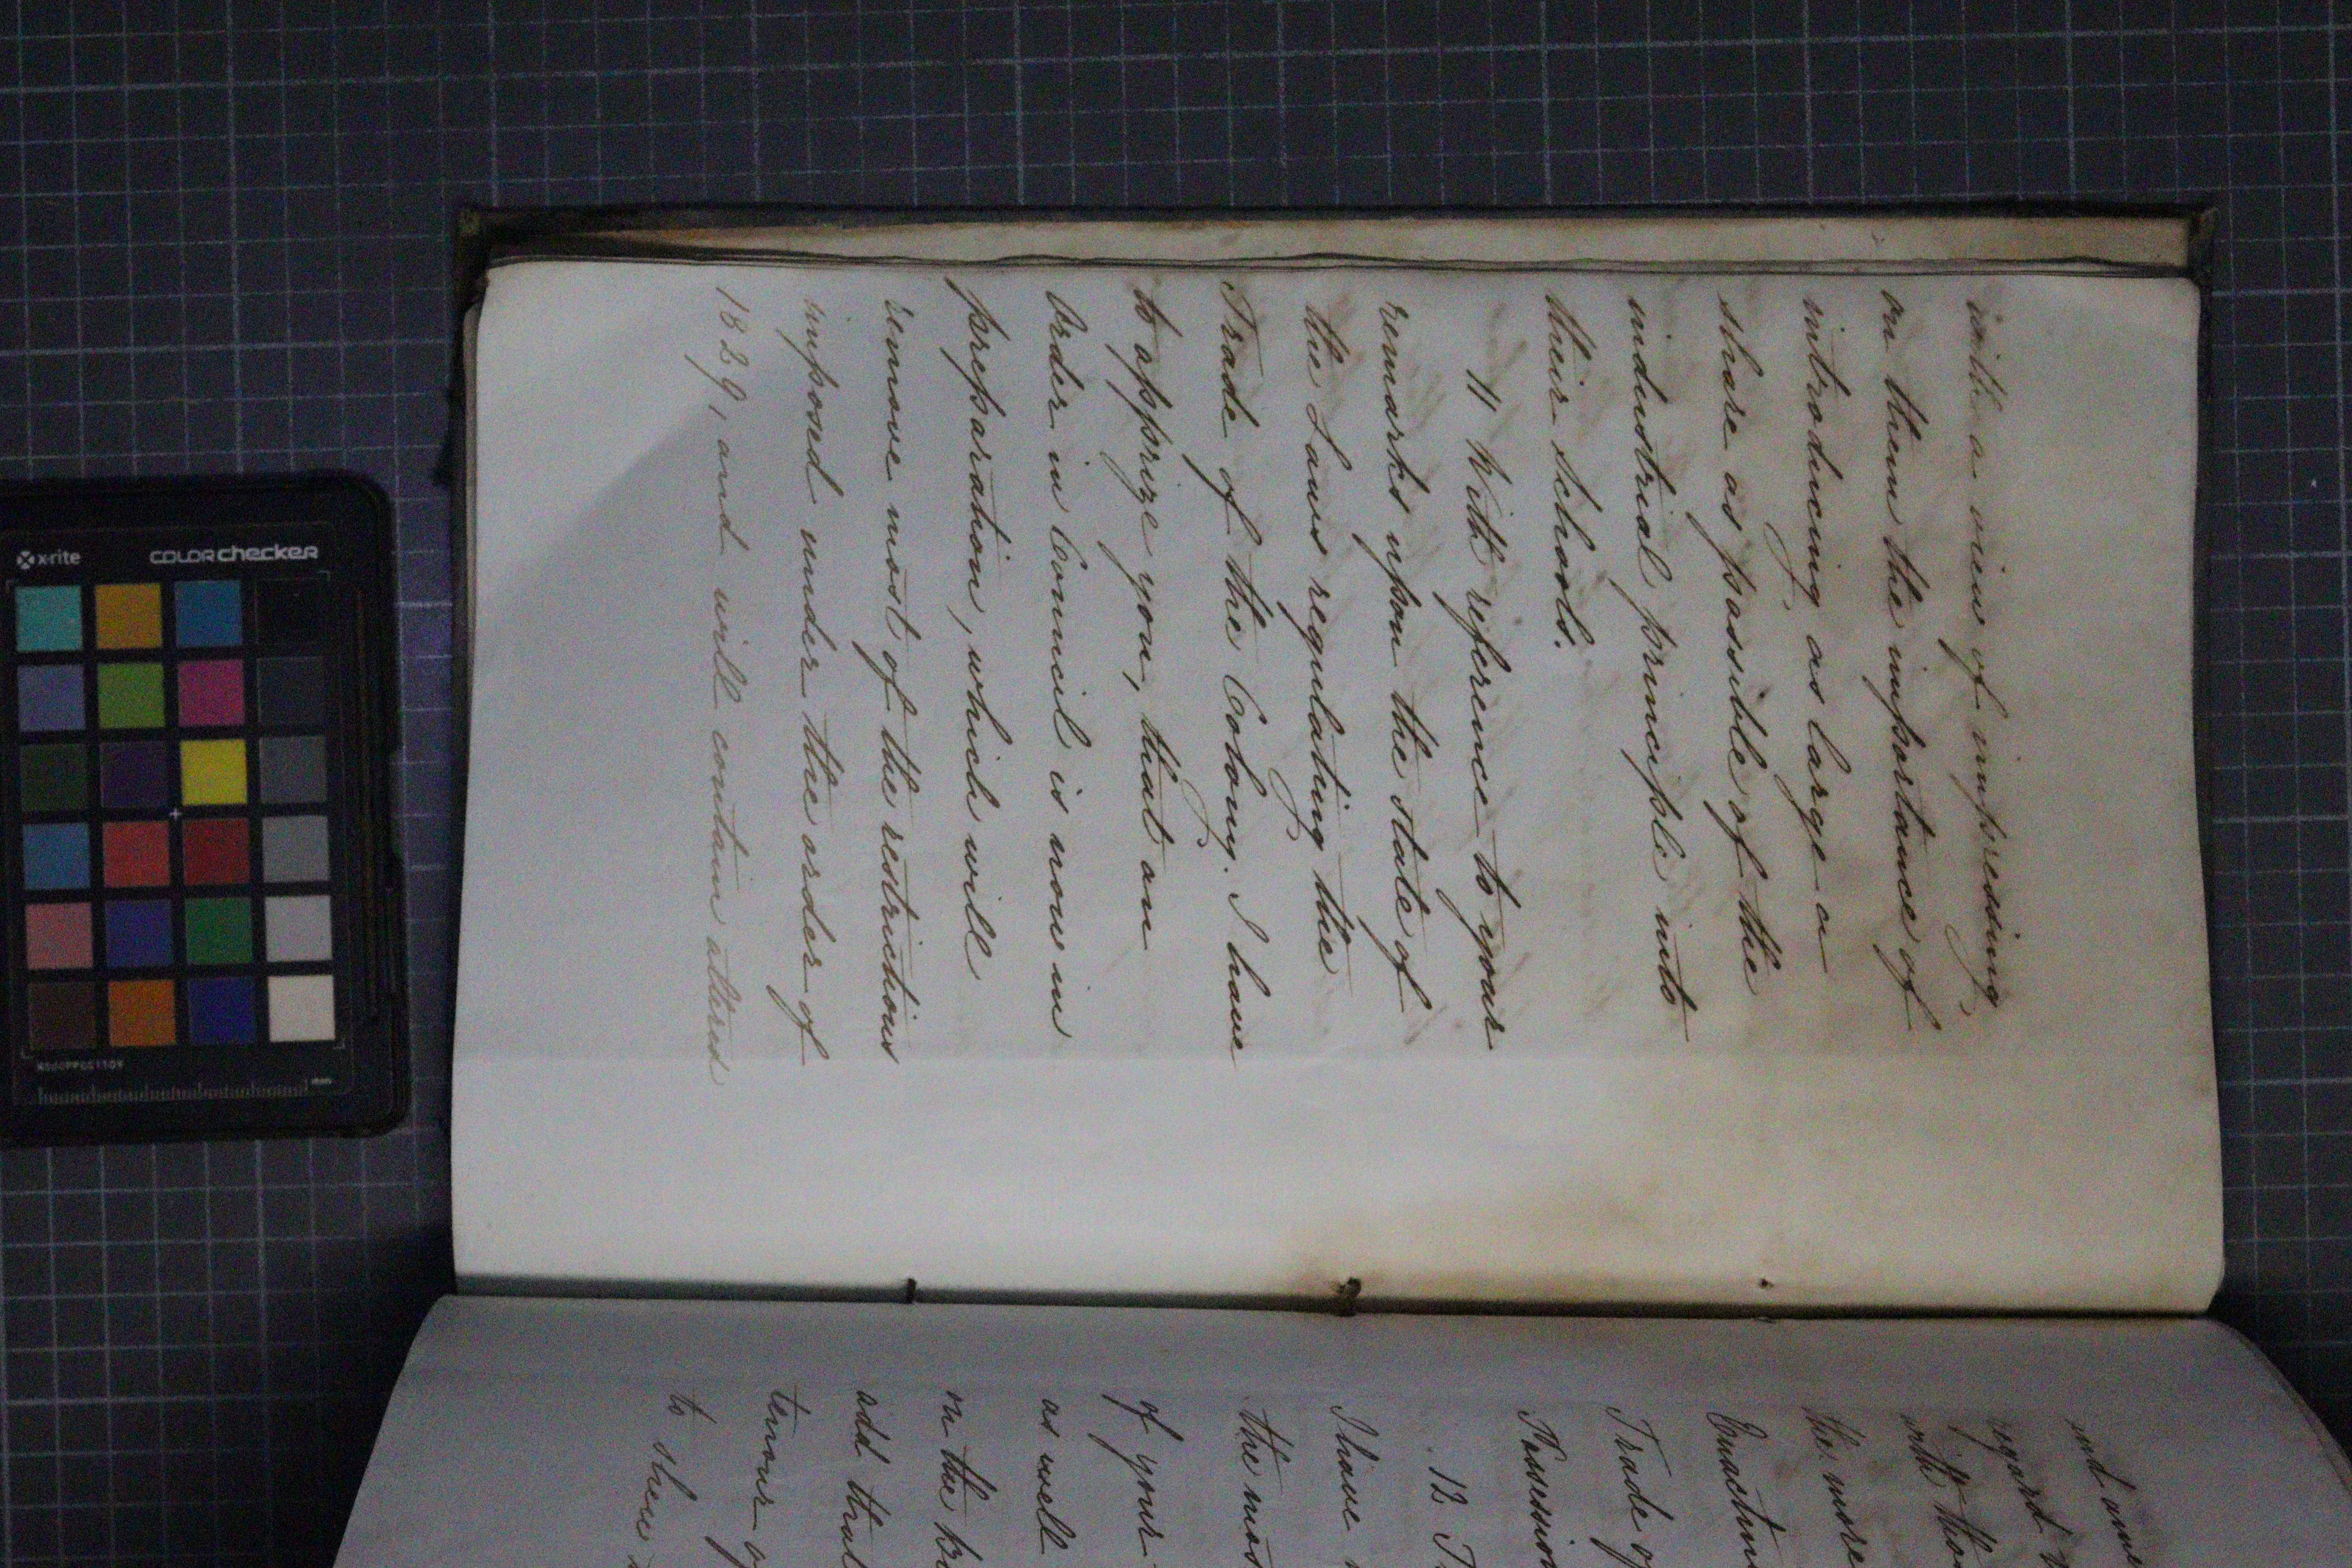 with a view of impressing
on them the importance of
introducing as large a
share as possible of the
industrial principle into
their Schools.
11 With reference to your
remarks upon the state of
the Laws regulating the
Trade of the Colony. I have
to apprize you, that an
Order in Council is now in
preparation, which will
remove most of the restrictions
imposed under the order of
1829, and will contain altered
and am
regard
with thos
the more
Enactm
Trade of
Possession
12. I
I have
the mos
of your
as well
in the
add that
tenour of
to shew
x-rite
COLOR checker
mm